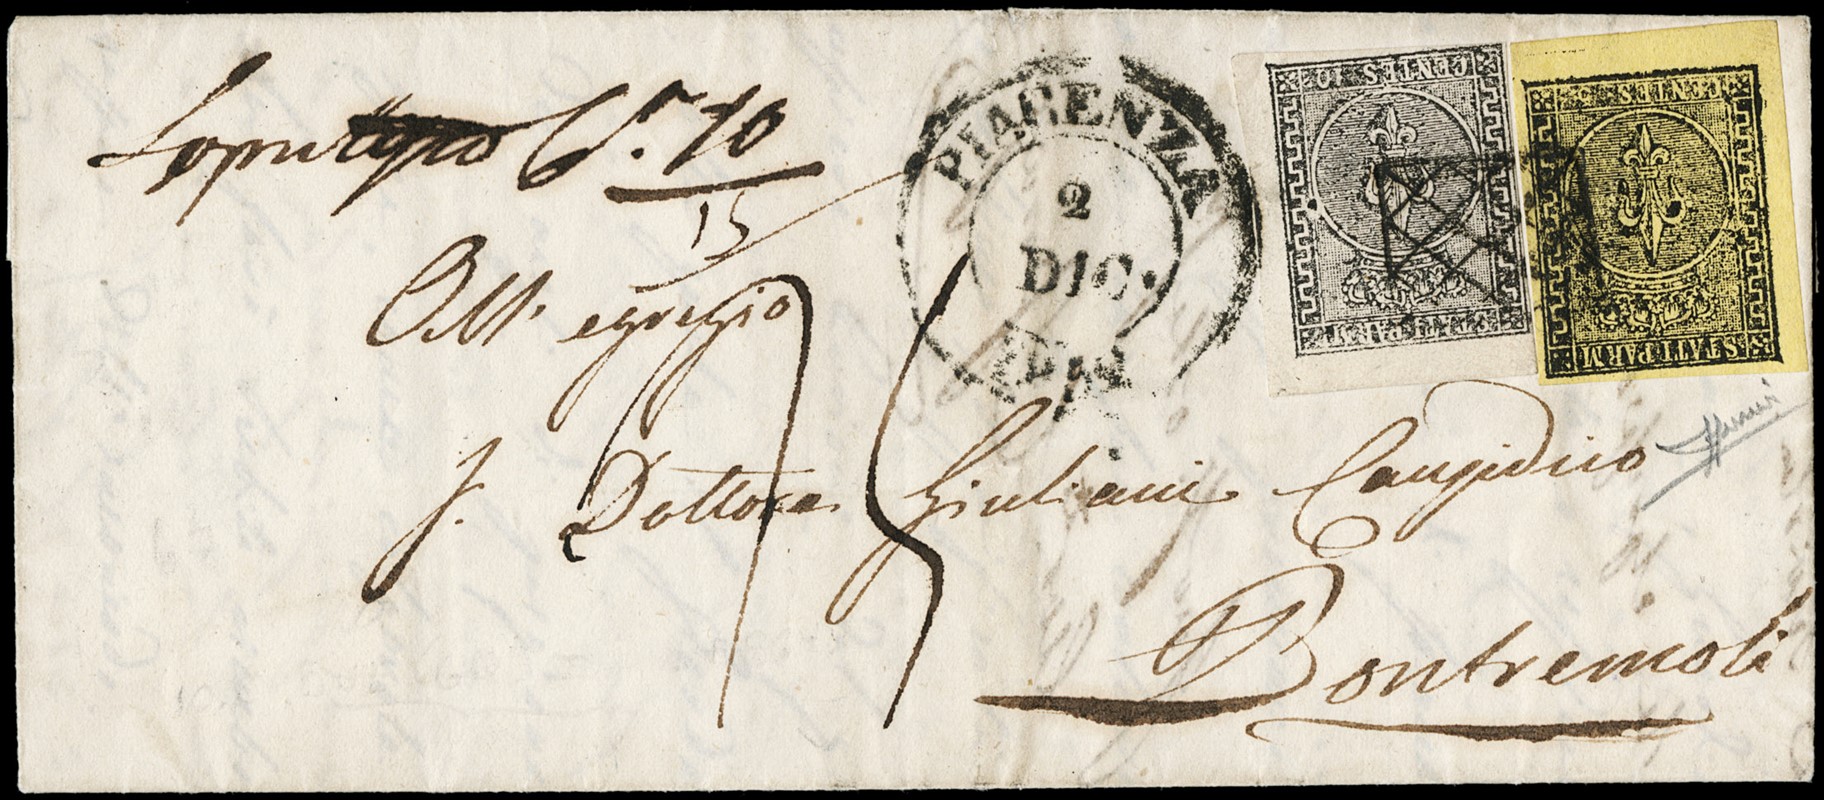 C.mi 10
15
All' egregio
S. Dottore Giuliani Causidico
Pontremoli
75
PIACENZA
2
DIC.
CENTES. 10
STATI PARM.
CENTES. 5
STATI PARM